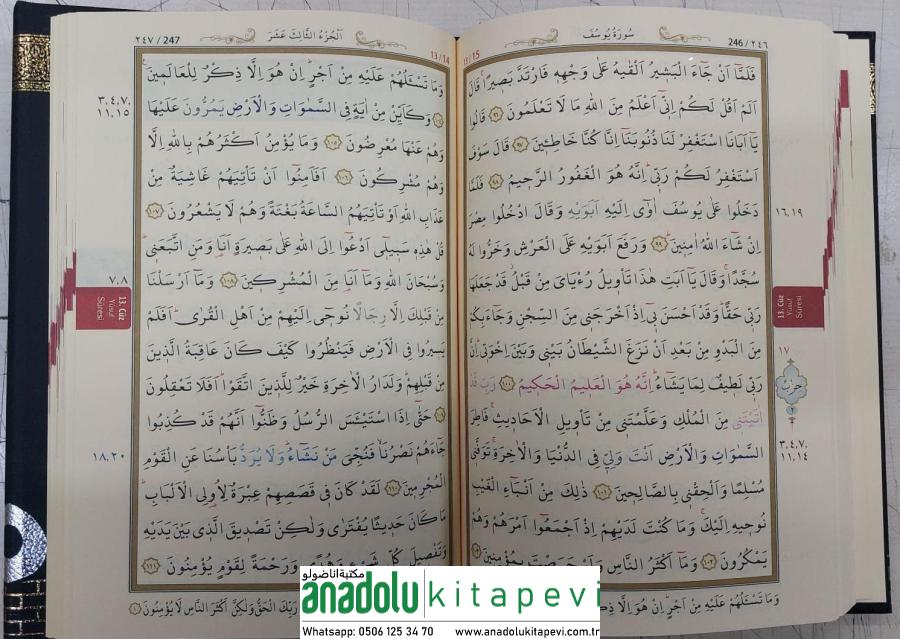 ٢٤٦ / 246
سُورَةُ يُوسُفَ
13/15
فَلَمَّٓا اَنْ جَٓاءَ الْبَشٖيرُ اَلْقٰيهُ عَلٰى وَجْهِهٖ فَارْتَدَّ بَصٖيرًا قَالَ
اَلَمْ اَقُلْ لَكُمْ اِنّٖٓى اَعْلَمُ مِنَ اللّٰهِ مَا لَا تَعْلَمُونَ ﴿٩٦﴾ قَالُوا
يَٓا اَبَانَا اسْتَغْفِرْ لَنَا ذُنُوبَنَٓا اِنَّا كُنَّا خَاطِـٖٔينَ ﴿٩٧﴾ قَالَ سَوْفَ
اَسْتَغْفِرُ لَكُمْ رَبّٖى اِنَّهُ هُوَ الْغَفُورُ الرَّحٖيمُ ﴿٩٨﴾ فَلَمَّا
دَخَلُوا عَلٰى يُوسُفَ اٰوٰٓى اِلَيْهِ اَبَوَيْهِ وَقَالَ ادْخُلُوا مِصْرَ
اِنْ شَٓاءَ اللّٰهُ اٰمِنٖينَ ﴿٩٩﴾ وَرَفَعَ اَبَوَيْهِ عَلَى الْعَرْشِ وَخَرُّوا لَهُ
سُجَّدًا وَقَالَ يَٓا اَبَتِ هٰذَا تَاْوٖيلُ رُءْيَاىَ مِنْ قَبْلُ قَدْ جَعَلَهَا
رَبّٖى حَقًّا وَقَدْ اَحْسَنَ بٖٓى اِذْ اَخْرَجَنٖى مِنَ السِّجْنِ وَجَٓاءَ بِكُمْ
مِنَ الْبَدْوِ مِنْ بَعْدِ اَنْ نَزَغَ الشَّيْطَانُ بَيْنٖى وَبَيْنَ اِخْوَتٖى اِنَّ
رَبّٖى لَطٖيفٌ لِمَا يَشَٓاءُ اِنَّهُ هُوَ الْعَلٖيمُ الْحَكٖيمُ ﴿١٠٠﴾ رَبِّ قَدْ
اٰتَيْتَنٖى مِنَ الْمُلْكِ وَعَلَّمْتَنٖى مِنْ تَاْوٖيلِ الْاَحَادٖيثِ فَاطِرَ
السَّمٰوَاتِ وَالْاَرْضِ اَنْتَ وَلِيّٖ فِى الدُّنْيَا وَالْاٰخِرَةِ تَوَفَّنٖى
مُسْلِمًا وَاَلْحِقْنٖى بِالصَّالِحٖينَ ﴿١٠١﴾ ذٰلِكَ مِنْ اَنْبَٓاءِ الْغَيْبِ
نُوحٖيهِ اِلَيْكَ وَمَا كُنْتَ لَدَيْهِمْ اِذْ اَجْمَعُٓوا اَمْرَهُمْ وَهُمْ
يَمْكُرُونَ ﴿١٠٢﴾ وَمَٓا اَكْثَرُ النَّاسِ وَلَوْ حَرَصْتَ بِمُؤْمِنٖينَ ﴿١٠٣﴾
وَمَا تَسْـَٔلُهُمْ عَلَيْهِ مِنْ اَجْرٍ اِنْ هُوَ اِلَّا ذِكْرٌ
١٦.١٩
13. Cüz
Yûsuf
Sûresi
١٧
حزب
٢
٣.٤.٧.
١١.١٤
٢٤٧ / 247
اَلْجُزْءُ الثَّالِثَ عَشَرَ
13/14
وَمَا تَسْـَٔلُهُمْ عَلَيْهِ مِنْ اَجْرٍ اِنْ هُوَ اِلَّا ذِكْرٌ لِلْعَالَمٖينَ
﴿١٠٤﴾ وَكَاَيِّنْ مِنْ اٰيَةٍ فِى السَّمٰوَاتِ وَالْاَرْضِ يَمُرُّونَ عَلَيْهَا
وَهُمْ عَنْهَا مُعْرِضُونَ ﴿١٠٥﴾ وَمَا يُؤْمِنُ اَكْثَرُهُمْ بِاللّٰهِ اِلَّا
وَهُمْ مُشْرِكُونَ ﴿١٠٦﴾ اَفَاَمِنُٓوا اَنْ تَاْتِيَهُمْ غَاشِيَةٌ مِنْ
عَذَابِ اللّٰهِ اَوْ تَاْتِيَهُمُ السَّاعَةُ بَغْتَةً وَهُمْ لَا يَشْعُرُونَ ﴿١٠٧﴾
قُلْ هٰذِهٖ سَبٖيلٖٓى اَدْعُٓوا اِلَى اللّٰهِ عَلٰى بَصٖيرَةٍ اَنَا۬ وَمَنِ اتَّبَعَنٖى
وَسُبْحَانَ اللّٰهِ وَمَٓا اَنَا۬ مِنَ الْمُشْرِكٖينَ ﴿١٠٨﴾ وَمَٓا اَرْسَلْنَا
مِنْ قَبْلِكَ اِلَّا رِجَالًا نُوحٖٓى اِلَيْهِمْ مِنْ اَهْلِ الْقُرٰى اَفَلَمْ
يَسٖيرُوا فِى الْاَرْضِ فَيَنْظُرُوا كَيْفَ كَانَ عَاقِبَةُ الَّذٖينَ
مِنْ قَبْلِهِمْ وَلَدَارُ الْاٰخِرَةِ خَيْرٌ لِلَّذٖينَ اتَّقَوْا اَفَلَا تَعْقِلُونَ
﴿١٠٩﴾ حَتّٰٓى اِذَا اسْتَيْـَٔسَ الرُّسُلُ وَظَنُّٓوا اَنَّهُمْ قَدْ كُذِبُوا
جَٓاءَهُمْ نَصْرُنَا فَنُجِّىَ مَنْ نَشَٓاءُ وَلَا يُرَدُّ بَاْسُنَا عَنِ الْقَوْمِ
الْمُجْرِمٖينَ ﴿١١٠﴾ لَقَدْ كَانَ فٖى قَصَصِهِمْ عِبْرَةٌ لِاُو۬لِى الْاَلْبَابِ
مَا كَانَ حَدٖيثًا يُفْتَرٰى وَلٰكِنْ تَصْدٖيقَ الَّذٖى بَيْنَ يَدَيْهِ
وَتَفْصٖيلَ كُلِّ شَيْءٍ وَهُدًى وَرَحْمَةً لِقَوْمٍ يُؤْمِنُونَ ﴿١١١﴾
رَبِّكَ الْحَقُّ وَلٰكِنَّ اَكْثَرَ النَّاسِ لَا يُؤْمِنُونَ ﴿١﴾
٣.٤.٧.
١١.١٥
٧.٨
13. Cüz
Yûsuf
Sûresi
١٨.٢٠
مكتبة اناضولو
anadolu kitapevi
Whatsapp: 0506 125 34 70 www.anadolukitapevi.com.tr